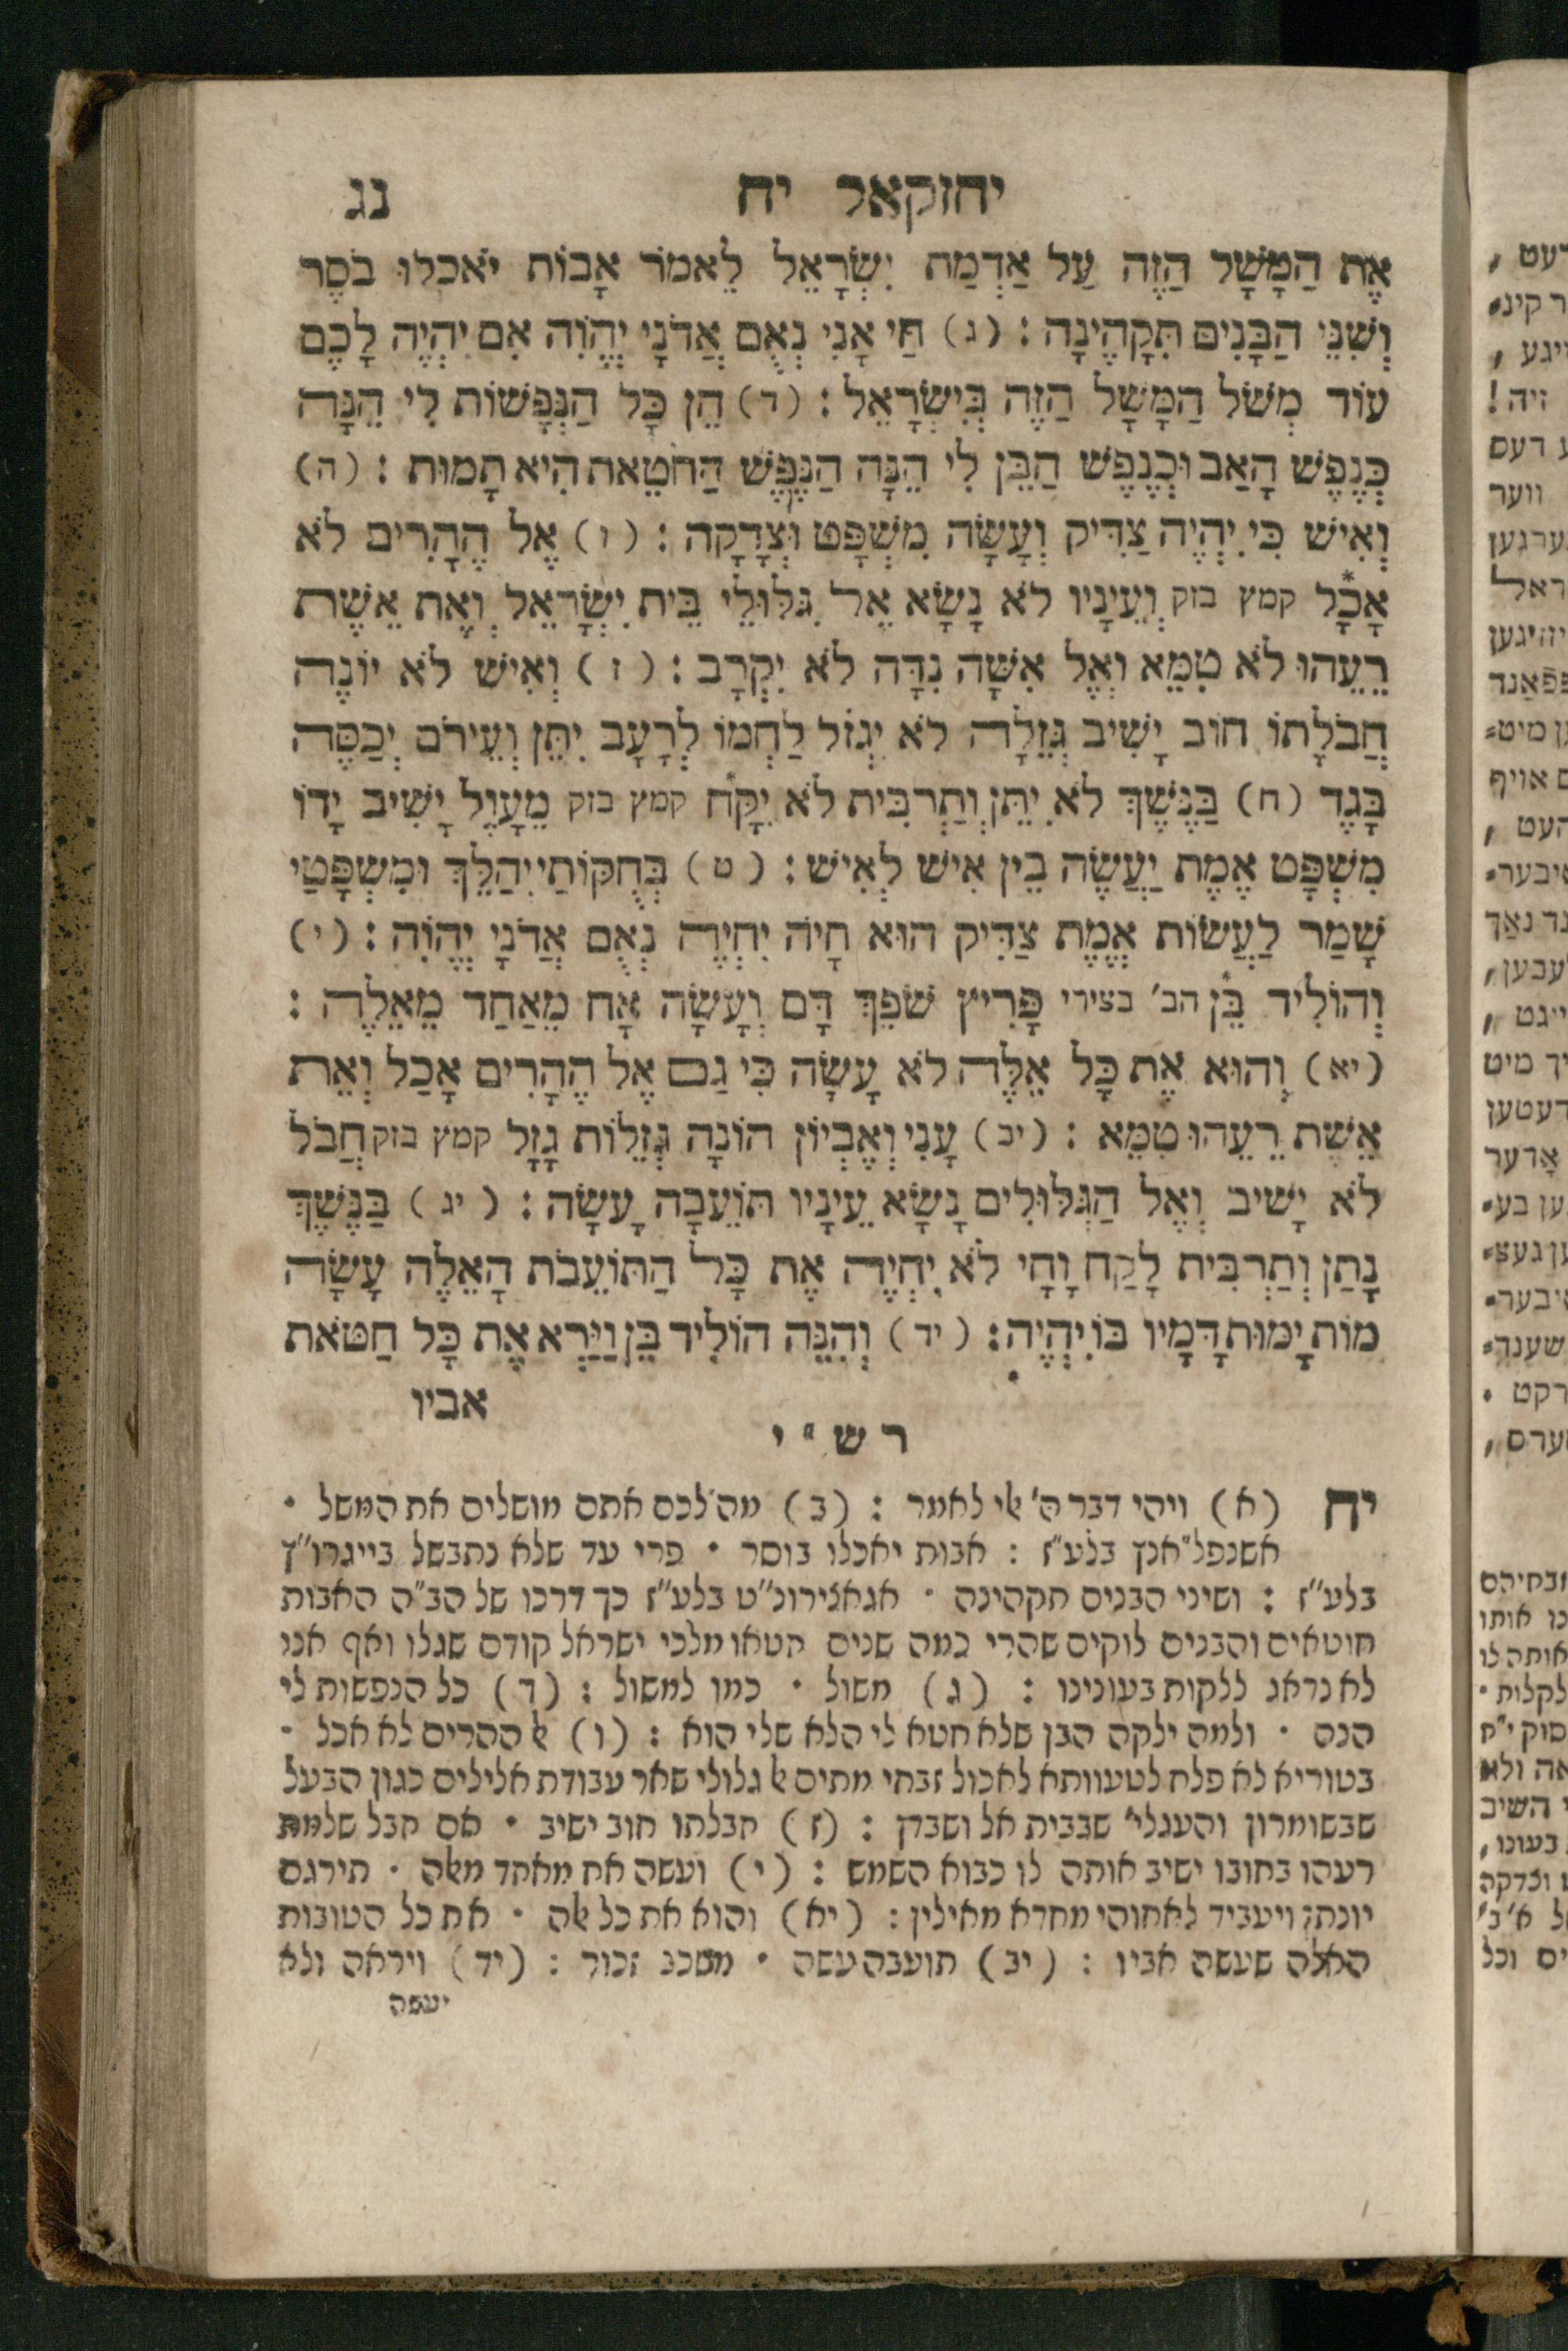 יחזקאל יח נג
אֶת הַמָּשָׁל הַזֶּה עַל אַדְמַת יִשְׂרָאֵל לֵאמֹר אָבוֹת יֹאכְלוּ בֹסֶר
וְשִׁנֵּי הַבָּנִים תִּקְהֶינָה : (ג) חַי אָנִי נְאֻם אֲדֹנָי יְהֹוִה אִם יִהְיֶה לָכֶם
עוֹד מְשֹׁל הַמָּשָׁל הַזֶּה בְּיִשְׂרָאֵל : (ד) הֵן כָּל הַנְּפָשׁוֹת לִי הֵנָּה
כְּנֶפֶשׁ הָאַב וּכְנֶפֶשׁ הַבֵּן לִי הֵנָּה הַנֶּפֶשׁ הַחֹטֵאת הִיא תָמוּת : (ה)
וְאִישׁ כִּי יִהְיֶה צַדִּיק וְעָשָׂה מִשְׁפָּט וּצְדָקָה : (ו) אֶל הֶהָרִים לֹא
אָכָל* קמץ בזק וְעֵינָיו לֹא נָשָׂא אֶל גִּלּוּלֵי בֵּית יִשְׂרָאֵל וְאֶת אֵשֶׁת
רֵעֵהוּ לֹא טִמֵּא וְאֶל אִשָּׁה נִדָּה לֹא יִקְרָב : (ז) וְאִישׁ לֹא יוֹנֶה
חֲבֹלָתוֹ חוֹב יָשִׁיב גְּזֵלָה לֹא יִגְזֹל לַחְמוֹ לְרָעֵב יִתֵּן וְעֵירֹם יְכַסֶּה
בָּגֶד (ח) בַּנֶּשֶׁךְ לֹא יִתֵּן וְתַרְבִּית לֹא יִקָּח* קמץ בזק מֵעָוֶל יָשִׁיב יָדוֹ
מִשְׁפָּט אֱמֶת יַעֲשֶׂה בֵין אִישׁ לְאִישׁ : (ט) בְּחֻקּוֹתַי יְהַלֵּךְ וּמִשְׁפָּטַי
שָׁמַר לַעֲשׂוֹת אֱמֶת צַדִּיק הוּא חָיֹה יִחְיֶה נְאֻם אֲדֹנָי יְהֹוִה : (י)
וְהוֹלִיד בֵּן* הב' בצירי פָּרִיץ שֹׁפֵךְ דָּם וְעָשָׂה אָח מֵאַחַד מֵאֵלֶּה :
(יא) וְהוּא אֶת כָּל אֵלֶּה לֹא עָשָׂה כִּי גַם אֶל הֶהָרִים אָכַל וְאֵת
אֵשֶׁת רֵעֵהוּ טִמֵּא : (יב) עָנִי וְאֶבְיוֹן הוֹנָה גְּזֵלוֹת גָּזָל קמץ בזק חֲבֹל
לֹא יָשִׁיב וְאֶל הַגִּלּוּלִים נָשָׂא עֵינָיו תּוֹעֵבָה עָשָׂה : (יג) בַּנֶּשֶׁךְ
נָתַן וְתַרְבִּית לָקַח וָחָי לֹא יִחְיֶה אֶת כָּל הַתּוֹעֵבֹת הָאֵלֶּה עָשָׂה
מוֹת יָמוּת דָּמָיו בּוֹ יִהְיֶה : (יד) וְהִנֵּה הוֹלִיד בֵּן וַיַּרְא אֶת כָּל חַטֹּאת
אביו
רש"י
יח (א) ויהי דבר ה' אלי לאמר : (ב) מה לכם אתם מושלים את המשל •
אשנפל"אנץ בלע"ז : אבות יאכלו בוסר • פרי עד שלא נתבשל בייגרו"ץ
בלע"ז : ושיני הבנים תקהינה • אגאצירונ"ט בלע"ז כך דרכו של הב"ה האבות
חוטאים והבנים לוקים שהרי כמה שנים חטאו מלכי ישראל קודם שגלו ואף אנו
לא נדאג ללקות בעונינו : (ג) משול • כמו למשול : (ד) כל הנפשות לי
הנה • ולמה ילקה הבן שלא חטא לי הלא שלי הוא : (ו) אל ההרים לא אכל •
בטוריא לא פלח לטעוותא לאכול זבחי מתים אל גלולי שאר עבודת אלילים כגון הבעל
שבשומרון והעגלי' שבבית אל ושבדן : (ז) חבלתו חוב ישיב • אם חבל שלמת
רעהו בחובו ישיב אותה לו כבוא השמש : (י) ועשה אח מאחד מאלה • תירגם
יונתן ויעביד לאחוהי מחדא מאילין : (יא) והוא את כל אלה • את כל הטובות
האלה שעשה אביו : (יב) תועבה עשה • משכב זכור : (יד) ויראה ולא
יעשה